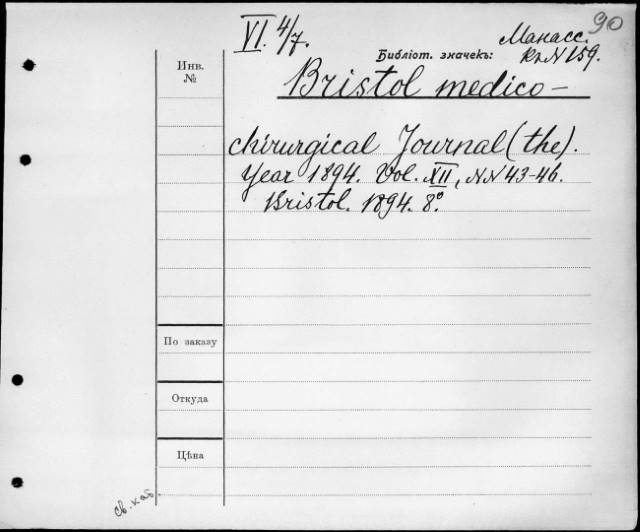 90
VI. 4/7.
Манасс.
Библіот. значекъ: Кл N 159.
Инв.
№
Bristol medico-
chirurgical Journal (the).
Year 1894. Vol. XII, NN 43-46.
Bristol. 1894. 8°.
По заказу
Откуда
Цѣна
св. кат.